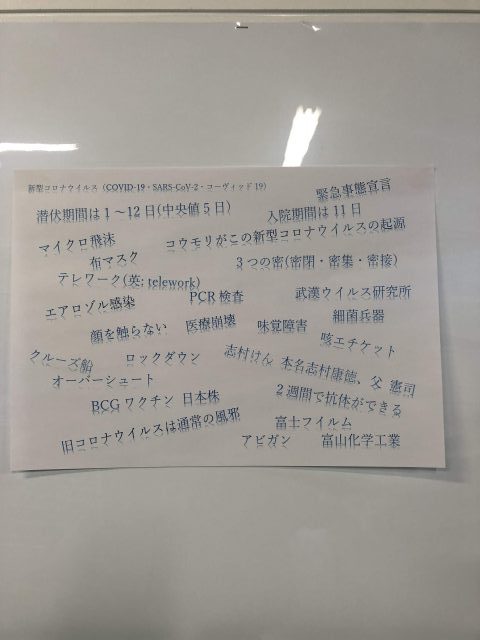 新型コロナウイルス（COVID-19・SARS-CoV-2・コーヴィッド19）
緊急事態宣言
潜伏期間は1～12日(中央値5日)
入院期間は11日
マイクロ飛沫
コウモリがこの新型コロナウイルスの起源
布マスク
3つの密(密閉・密集・密接)
テレワーク(英; telework)
エアロゾル感染
PCR検査
武漢ウイルス研究所
顔を触らない
医療崩壊
味覚障害
細菌兵器
咳エチケット
クルーズ船
ロックダウン
志村けん 本名志村康徳、父 憲司
オーバーシュート
BCGワクチン 日本株
2週間で抗体ができる
旧コロナウイルスは通常の風邪
富士フイルム
アビガン
富山化学工業